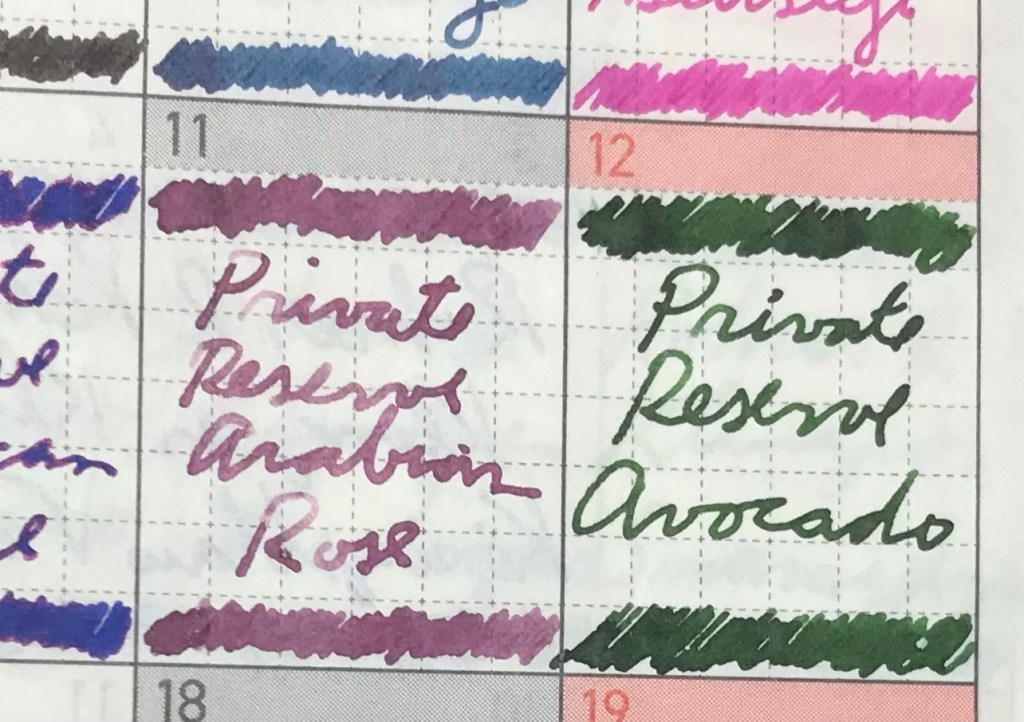 11
12
Private
Reserve
Arabian
Rose
Private
Reserve
Avocado
18
19